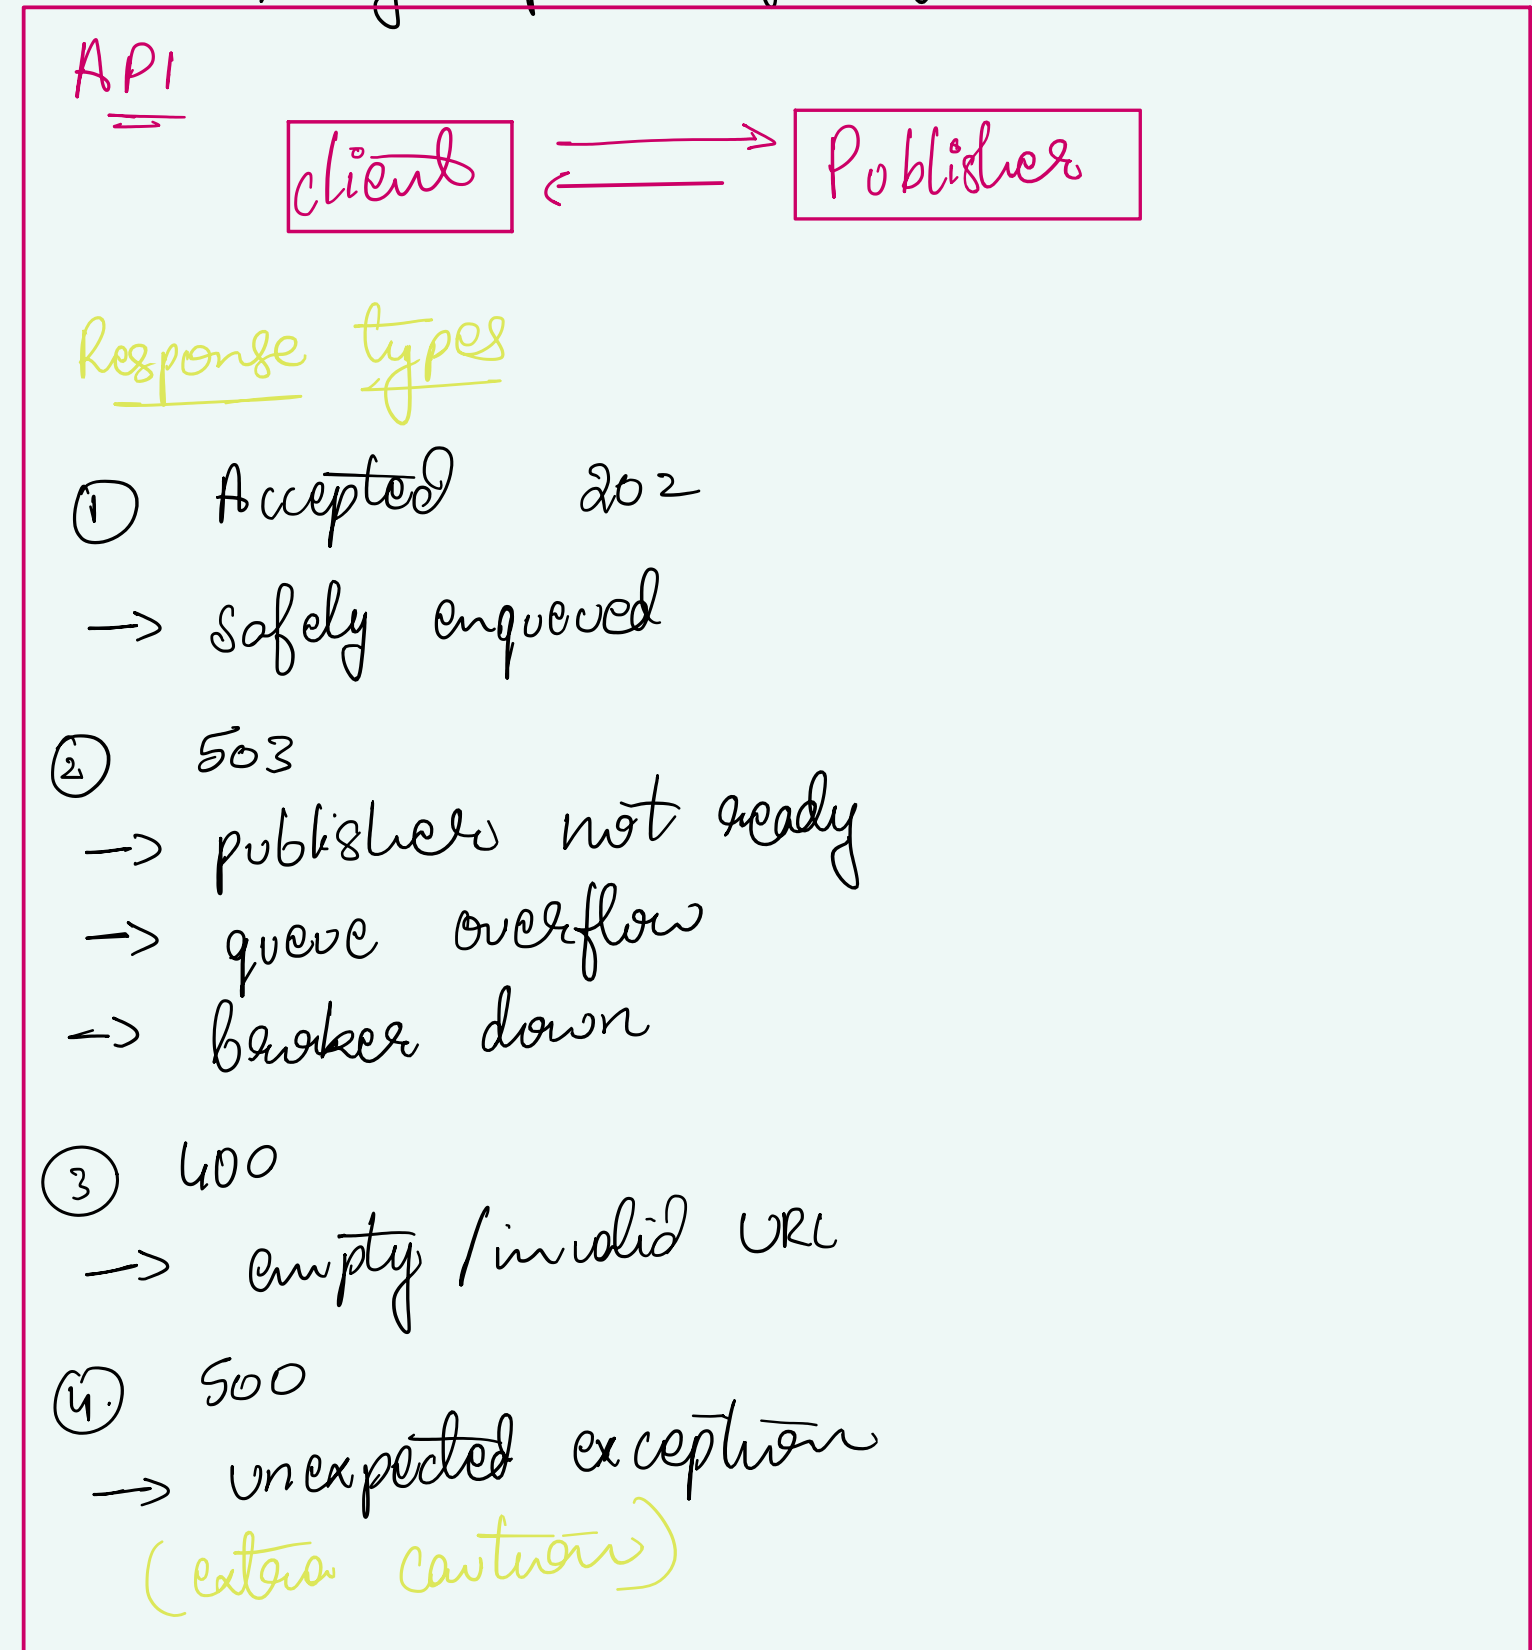 API
client Publisher
Response types
1 Accepted 202
→ safely enqueued
2 503
→ publisher not ready
→ queue overflow
→ broker down
3 400
→ empty / invalid URL
4. 500
→ unexpected exception
(extra caution)